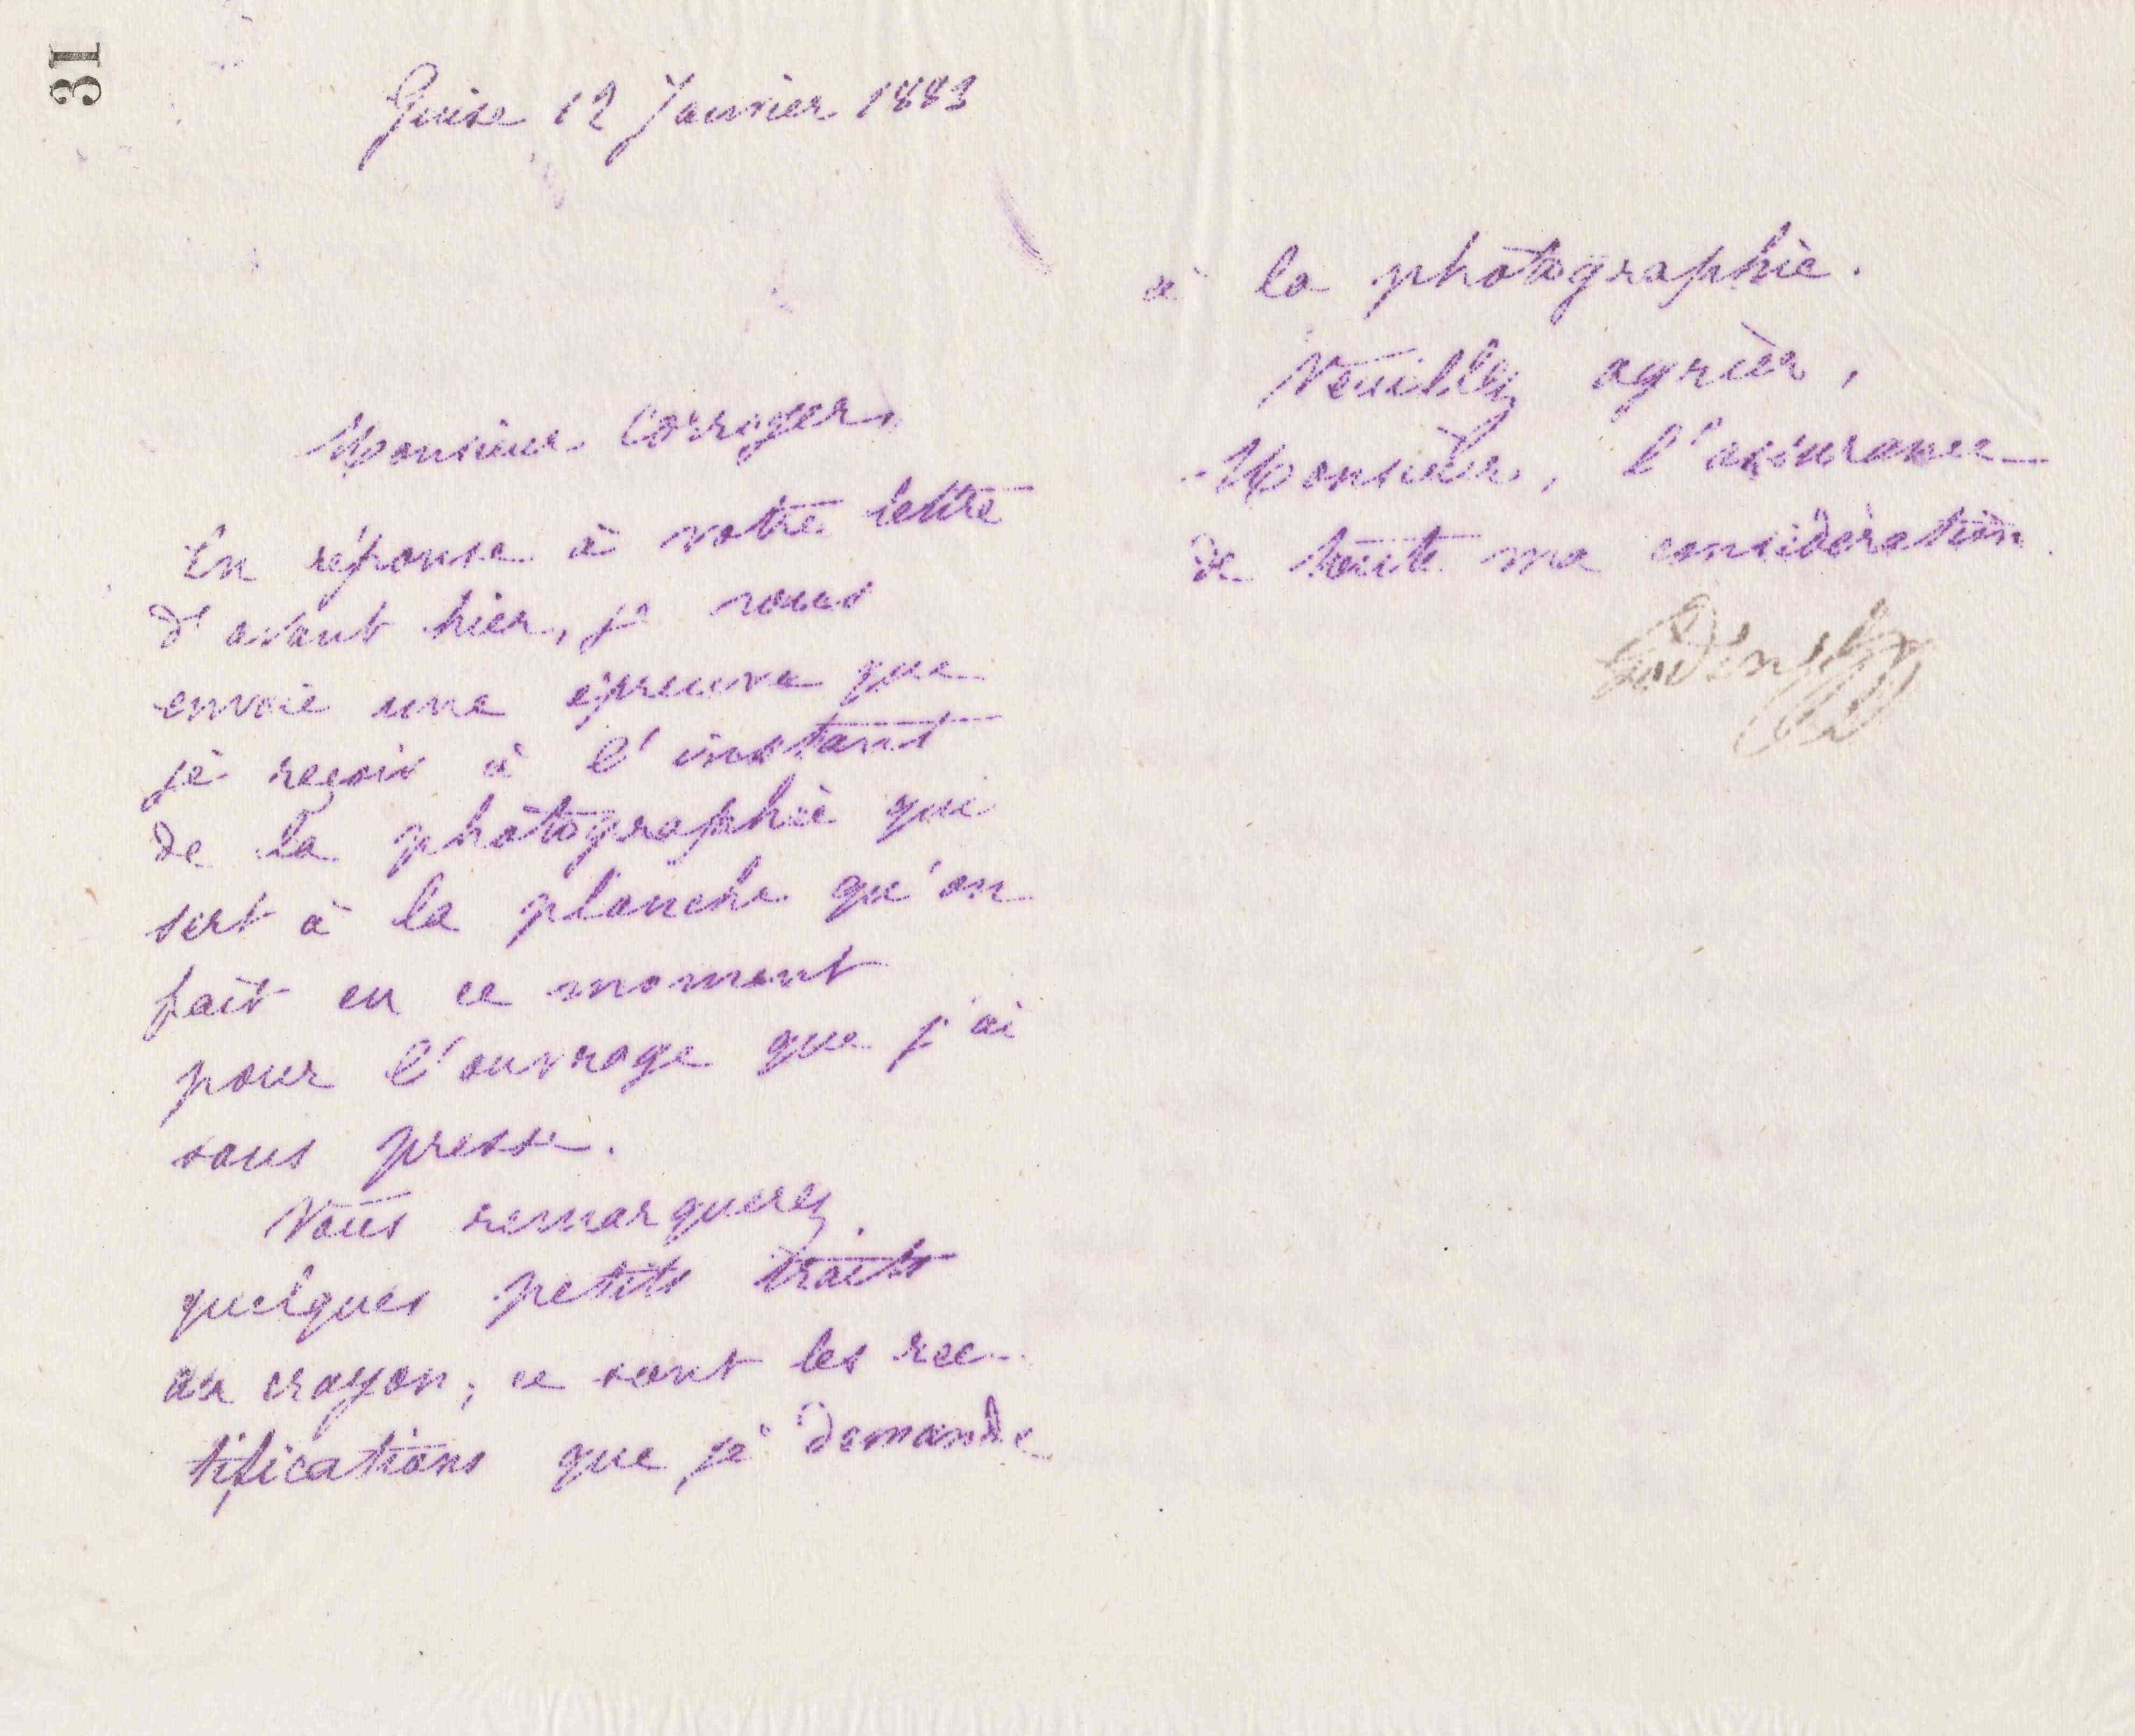 31
Guise 12 Janvier 1883
Monsieur Corroyer,
En réponse à votre lettre
d'avant hier, je vous
envoie une épreuve que
je reçois à l'instant
de la photographie qui
sert à la planche qu'on
fait en ce moment
pour l'ouvrage que j'ai
sous presse.
Vous remarquerez
quelques petits traits
au crayon; ce sont les rec-
tifications que je demande
à la photographie.
Veuillez agréer,
Monsieur, l'assurance
de toute ma considération.
Godin